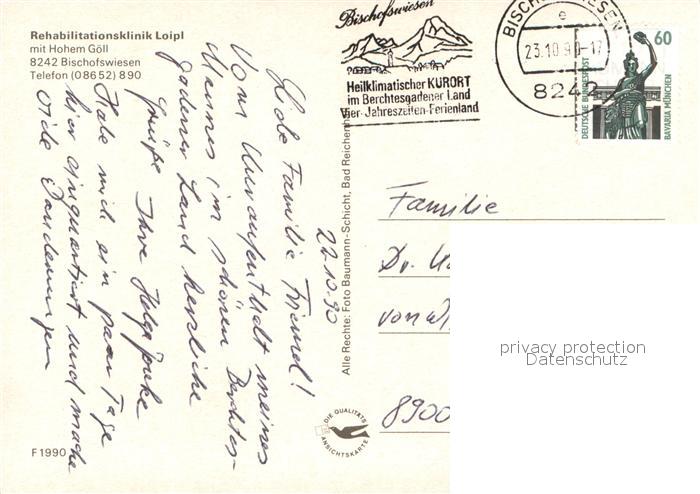 Rehabilitationsklinik Loipl
mit Hohem Göll
8242 Bischofswiesen
Telefon (0 86 52) 8 90
Bischofswiesen
Heilklimatischer KURORT
im Berchtesgadener Land
Vier-Jahreszeiten-Ferienland
BISCHOFSWIESEN
e
23.10.90-17
8242
60
DEUTSCHE BUNDESPOST
BAVARIA MÜNCHEN
22.10.90
Liebe Familie
Vom Kuraufenthalt meines
Mannes im schönen Berchtes-
gadener Land herzliche
Grüße Ihre Helga
Habe mich ein paar Tage
hier einquartiert und mache
viele Wanderungen
Alle Rechte: Foto Baumann-Schicht, Bad Reichenh
DIE QUALITÄTS
ANSICHTSKARTE
F 1990
Familie
Dr.
von
8900
privacy protection
Datenschutz